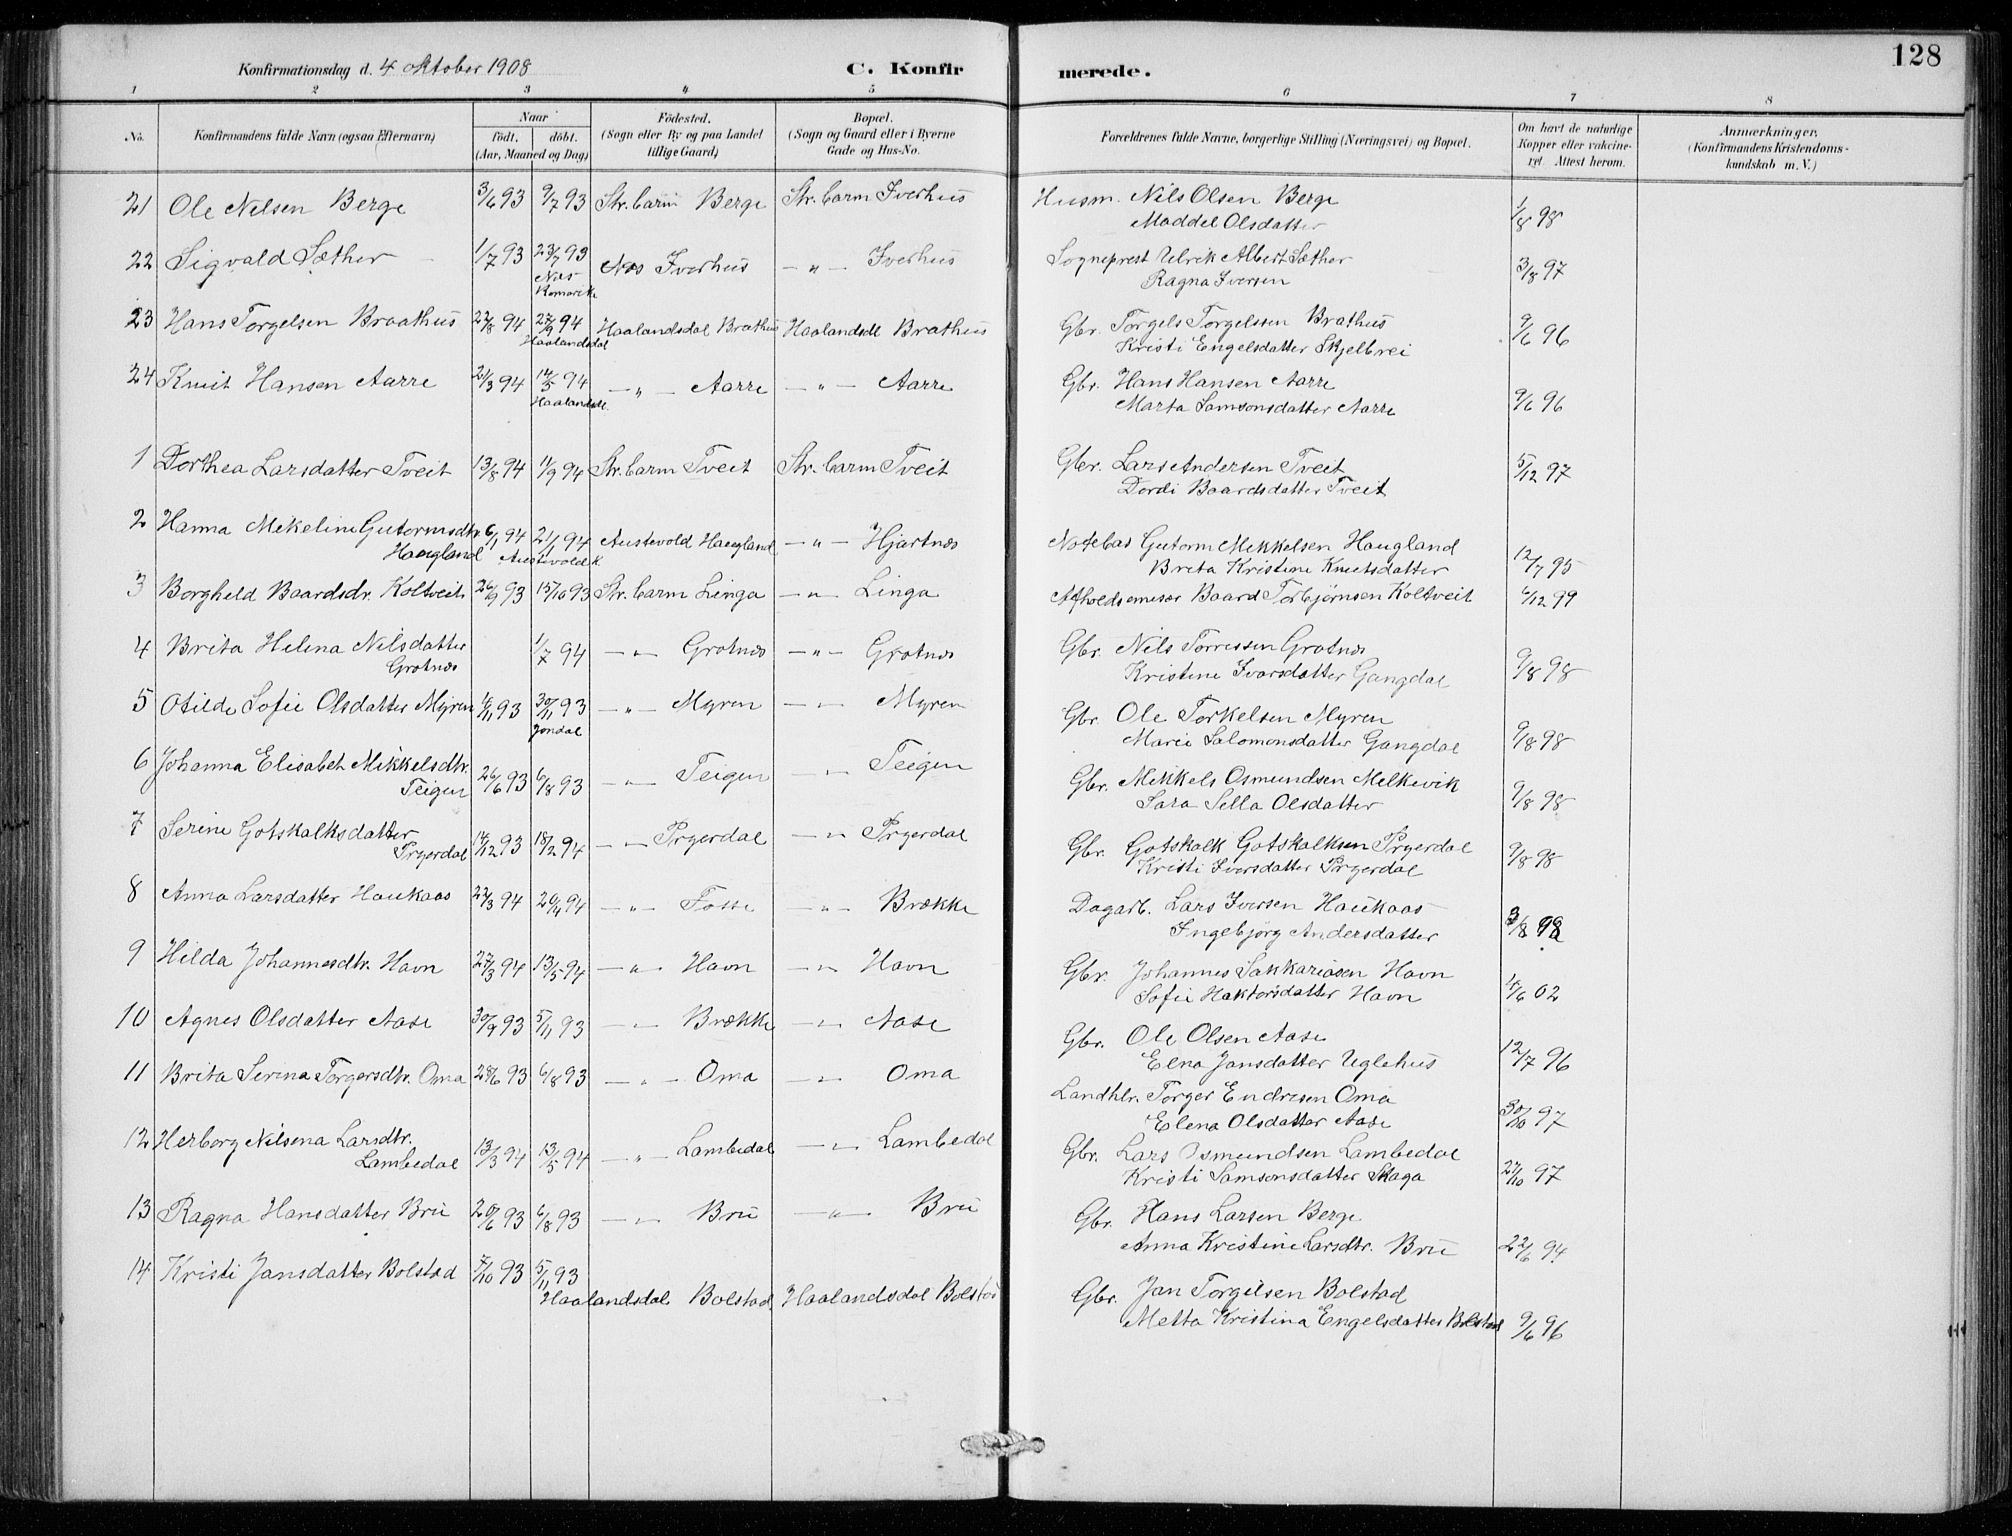 128
Konfirmationsdag d. 4 oktober 1908
C. Konfirmerede.
1 2 3 4 5 6 7 8
No.
Konfirmandens fulde Navn (ogsaa Efternavn)
Naar
födt. döbt.
(Aar, Maaned og Dag)
Födested.
(Sogn eller By og paa Landet
tillige Gaard)
Bopæl.
(Sogn og Gaard eller i Byerne
Gade og Hus-No.
Forældrenes fulde Navne, borgerlige Stilling (Næringsvei) og Bopæl.
Om havt de naturlige
Kopper eller vakcine-
ret. Attest herom.
Anmærkninger.
(Konfirmandens Kristendoms-
kundskab m. V.)
21 Ole Nilsen Berge 3/6 93 9/7 93 Str.barm Berge Str.barm Iverhus Husm. Nils Olsen Berge 1/8 98
Maddel Olsdatter
22 Sigvald Sæther 1/7 93 23/7 93 Næs Iverhus — „ — Iverhus Sogneprest Ulrik Albert Sæther 3/8 97
Næs
Ragna Iversen
23 Hans Torgelsen Braathus 22/8 94 27/9 94 Haalandsdal Brathus Haalandsdl Brathus Gbr. Torgels Torgelssen Brathus 9/6 96
Haalandsdal
Kristi Engelsdatter Skjelbrei
24 Knut Hansen Aarre 21/3 94 14/5 94 — „ — Aarre — „ — Aarre Gbr. Hans Hansen Aarre 9/6 96
Haalandsdl.
Marta Samsonsdatter Aarre
1 Dorthea Larsdatter Tveit 13/8 94 11/9 94 Str.barm Tveit Str.barm Tveit Gbr. Lars Andersen Tveit 5/12 97
Dordi Baardsdatter Tveit
2 Hanna Mikeline Gutormsdtr. 6/1 94 21/1 94 Austevold Haugland — „ — Hjartnæs Notebas Gutorm Mikkelsen Haugland 12/7 95
Haugland Austevold k
Brita Kristine Knutsdatter
3 Borghild Baardsdr. Koltveit 26/9 93 15/10 93 Str.barm Linga — „ — Linga Afholdsemisær Baard Torbjørnsen Koltveit 6/12 99
4 Brita Helena Nilsdatter 1/7 94 — „ — Grotnæs — „ — Grotnæs Gbr. Nils Torressen Grotnæs 9/8 98
Grotnæs
Kristine Ivarsdatter Gangdal
5 Otilde Sofie Olsdatter Myren 16/11 93 30/11 93 — „ — Myren — „ — Myren Gbr. Ole Torkelsen Myren 9/8 98
Jondal
Marie Salomonsdatter Gangdal
6 Johanna Elisabet Mikkelsdtr. 26/6 93 6/8 93 — „ — Teigen — „ — Teigen Gbr. Mikkels Osmundsen Melkevik 9/8 98
Teigen
Sara Sella Olsdatter
7 Serine Gotskalksdatter 14/12 93 18/2 94 — „ — Pryerdal — „ — Pryerdal Gbr. Gotskalk Gotskalksen Pryerdal 9/8 98
Pryerdal
Kristi Iversdatter Pryerdal
8 Anna Larsdatter Haukaas 22/3 94 26/4 94 — „ — Fosse — „ — Brække Dagarb. Lars Iversen Haukaas 3/8 98
Ingebjörg Andersdatter
9 Hilda Johannesdtr. Havn 27/3 94 13/5 94 — „ — Havn — „ — Havn Gbr. Johannes Sakkariasen Havn 4/6 02
Sofie Haktorsdatter Havn
10 Agnes Olsdatter Aase 30/9 93 5/11 93 — „ — Brække — „ — Aase Gbr. Ole Olsen Aase 12/7 96
Elna Jansdatter Uglehus
11 Brita Serina Torgersdtr. Oma 28/6 93 6/8 93 — „ — Oma — „ — Oma Landhlr. Torger Endresen Oma 30/10 97
Elena Olsdatter Aase
12 Herborg Nilsena Larsdtr. 13/3 94 13/5 94 — „ — Lambedal — „ — Lambedal Gbr. Lars Osmundsen Lambedal 27/10 97
Lambedal
Kristi Samsonsdatter Skaga
13 Ragna Hansdatter Bru 20/6 93 6/8 93 — „ — Bru — „ — Bru Gbr. Hans Larsen Berge
Anna Kristine Larsdtr. Bru 22/6 94
14 Kristi Jansdatter Bolstad 7/10 93 5/11 93
Haalandsdal Bolstad Haalandsdal Bolstad Gbr. Jan Torgilsen Bolstad
Metta Kristina Engelsdatter Bolstad 9/6 96